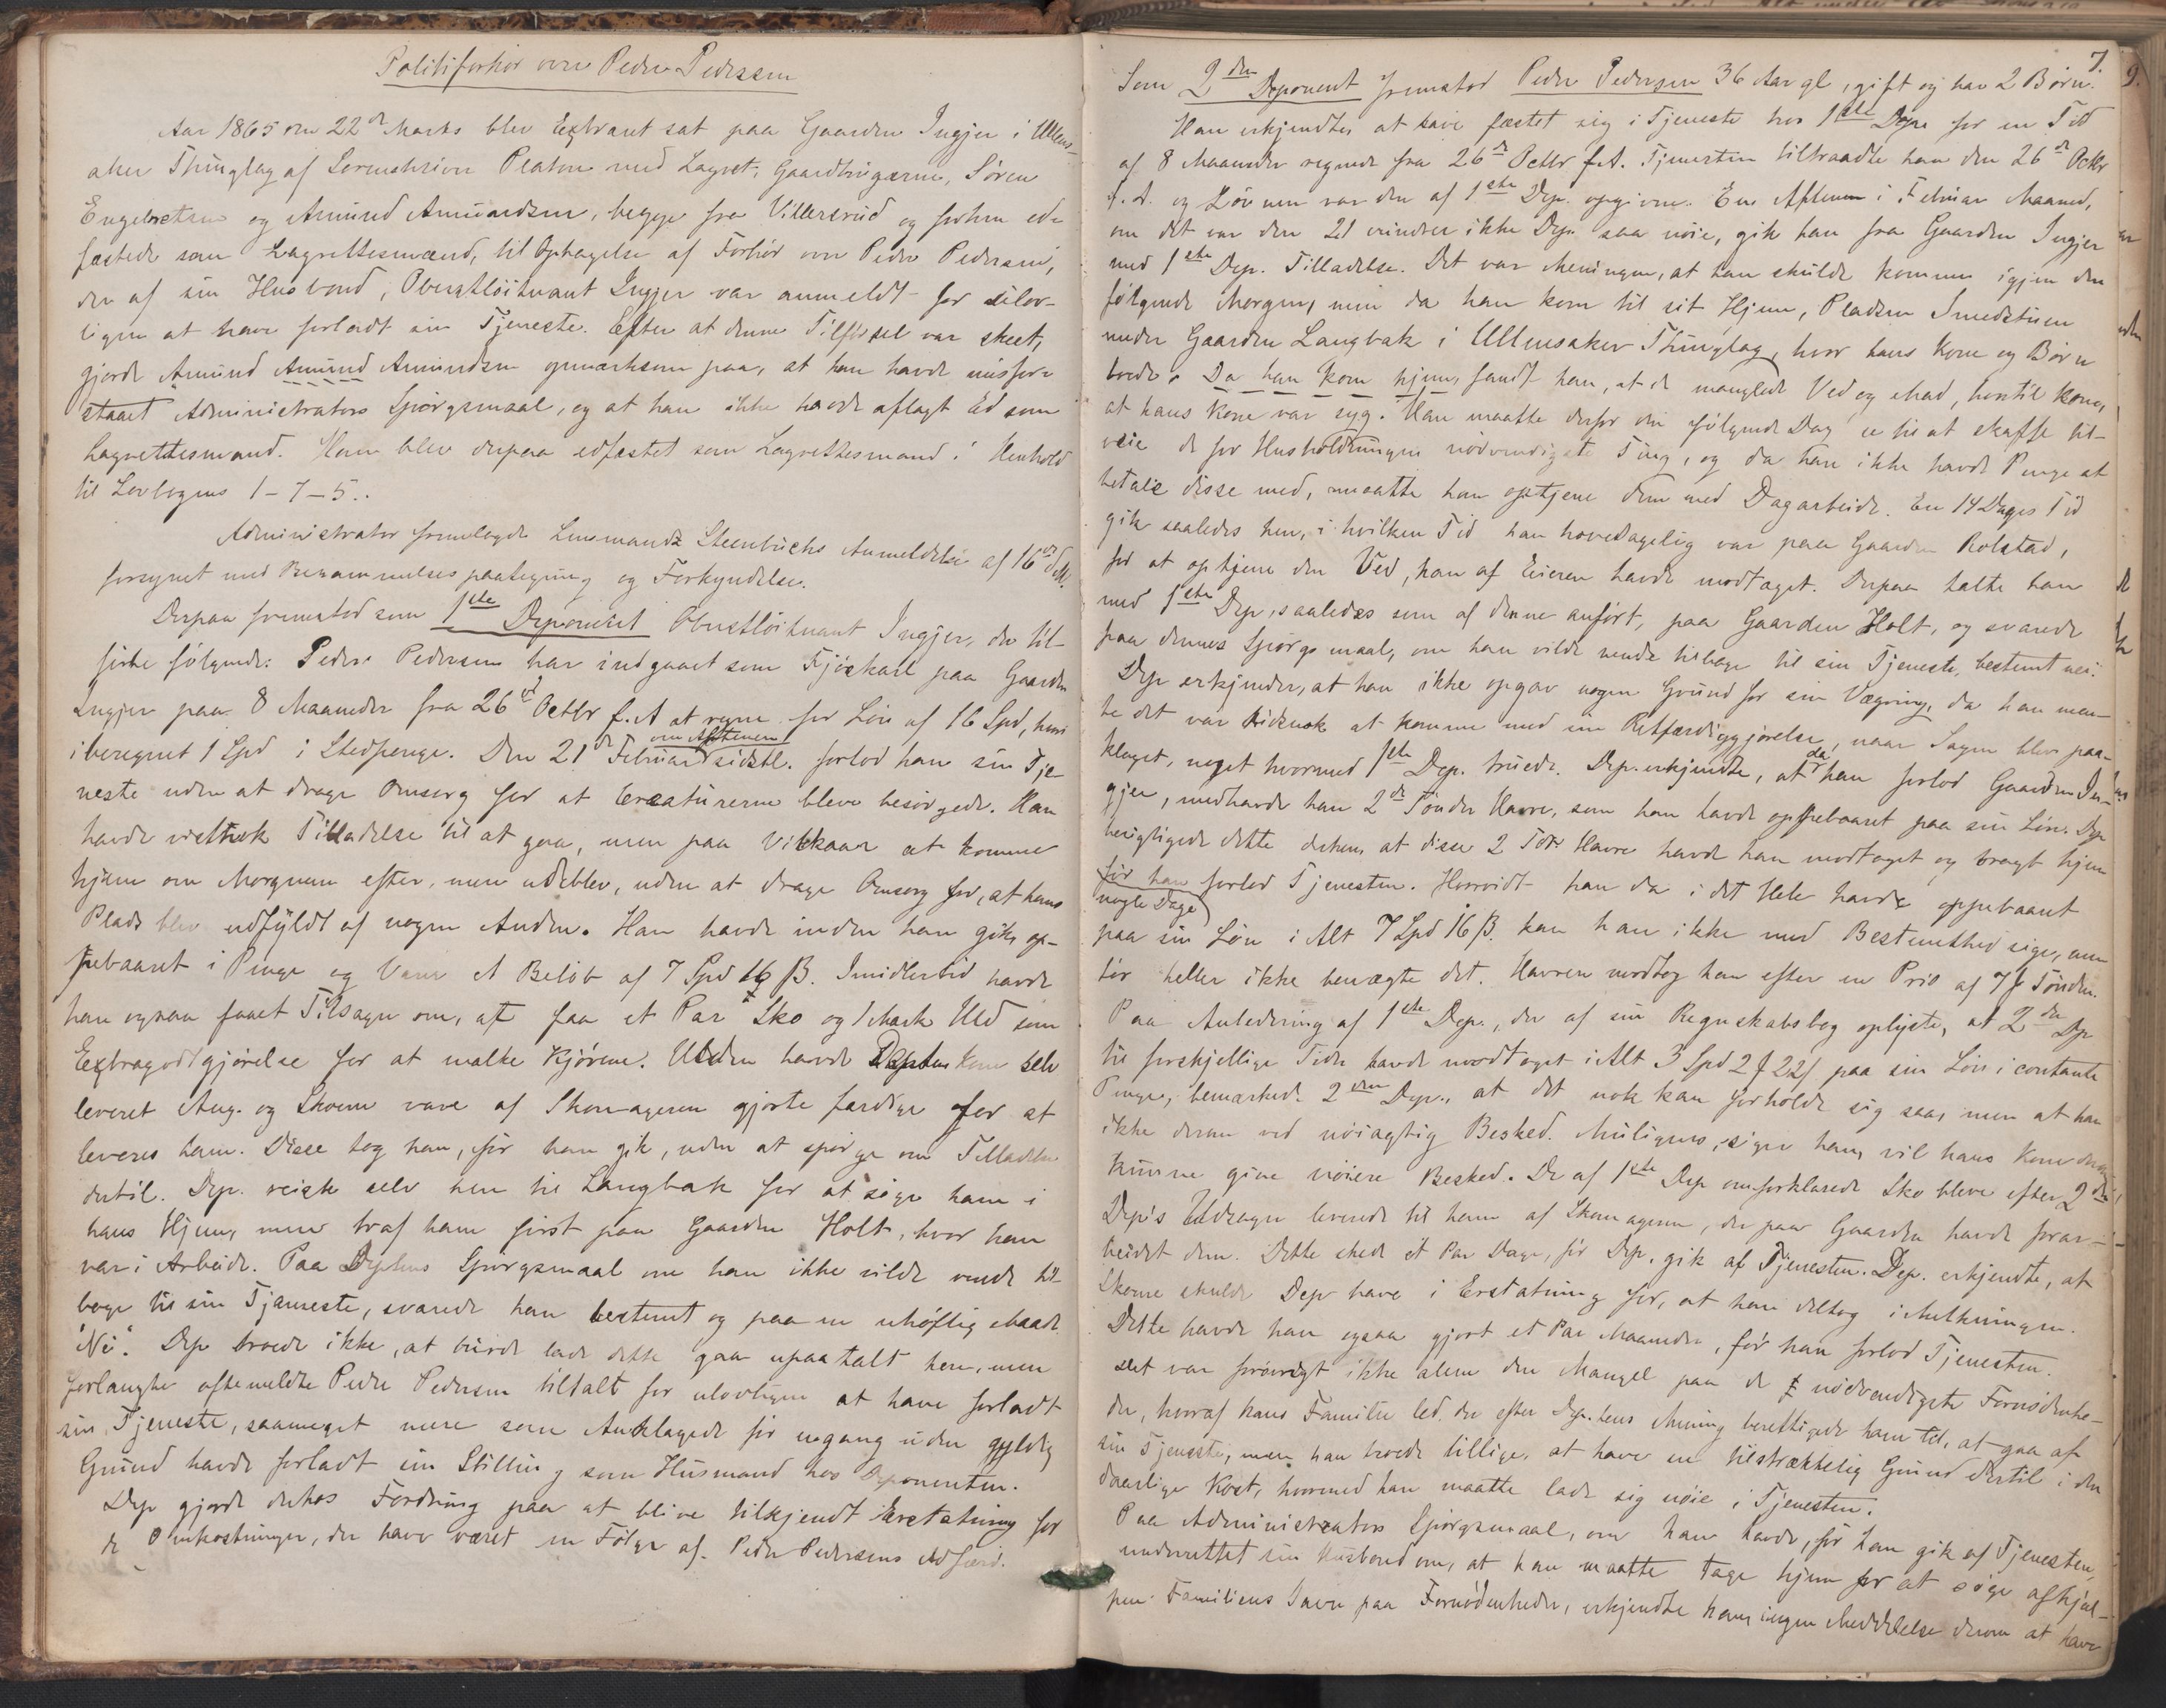 Politiforhør over Peder Pedersen
Aar 1865 den 22de Marts blev Extraret sat paa Gaarden Ingjer i Ullens-
aker Thinglag af Sorenskriver Platou med Lagret, Gaardbrugerne, Sören
Engebretsen og Amund Amundsen, begge fra Villersrud og forhen ed-
fæstede som Lagrettesmænd, til Optagelse af Forhör over Peder Pedersen,
der af sin Husbond, Oberstlöitnant Ingjer var anmeldt for ulov-
ligen at have forladt sin Tjeneste. Efter at denne Tilförsel var skeet,
gjorde Amund Amund Amundsen opmærksom paa, at han havde misfor-
staaet Administrators Spörgsmaal, og at han ikke havde aflagt Ed som
Lagrettesmand. Han blev derpaa edfæstet som Lagrettesmand i Henhold
til Lovbogens 1-7-5..
Administrator fremlagde Lensmand Steenbuchs Anmeldelse af 16de ds.
forsynet med Berammelsespaategning og Forkyndelse.
Derpaa fremstod som 1ste Deponent Oberstlöitnant Ingjer, der til-
förte fölgende: Peder Pedersen har indgaaet som Fjöskarl paa Gaarden
Ingjer paa 8 Maaneder fra 26de Octbr f.A at regne for Lön af 16 Spd, heri
iberegnet 1 Spd i Stedpenge. Den 21de Februar om Aftenen sidstl. forlod han sin Tje-
neste uden at drage Omsorg for at Creaturerne bleve besörgede. Han
havde vistnok Tilladelse til at gaa, men paa Vilkaar at komme
hjem om Morgenen efter, men udeblev, uden at drage Omsorg for, at hans
Plads blev udfyldt af nogen Anden. Han havde inden han gik, op-
pebaaret i Penge og Varer et Belöb af 7 Spd 16 β. Imidlertid havde
han ogsaa faaet Tilsagn om, at faa et Par Sko og 1 Mark Uld som
Extragodtgjörelse for at malke Kjörene. Ulden havde Deptens Kone selv
leveret Ang. og Skoene vare af Skomageren gjorte færdige for at
leveres ham. Disse tog han, för han gik, uden at spörge om Tilladelse
dertil. Dep. reiste selv hen til Langbak for at söge ham i
hans Hjem, men traf ham först paa Gaarden Holt, hvor han
var i Arbeide. Paa Deptens Spörgsmaal om han ikke vilde vende til-
bage til sin Tjeneste, svarede han bestemt og paa en uhöflig Maade
"Nei". Dep troede ikke, at burde lade dette gaa upaatalt hen, men
forlangte oftemeldte Peder Pedersen tiltalt for ulovligen at have forladt
sin Tjeneste, saameget mere som Anklagede för engang uden gyldig
Grund havde forladt sin Stilling som Husmand hos Deponenten.
Dep gjorde derhos Fordring paa at blive tilkjendt Erstatning for
de Omkostninger, der have været en Fölge af Peder Pedersens Adfærd.
7.
Som 2den Deponent fremstod Peder Pedersen 36 Aar gl, gift og har 2 Börn.
Han erkjendte, at have fæstet sig i Tjeneste hos 1ste Dep. for en Tid
af 8 Maaneder regnede fra 26de Octbr f.A. Tjenesten tiltraadte han den 26de Octbr
f.A. og Lönnen var den af 1ste Dep. opgivne. En Aftenen i Februar Maaned,
om det var den 21 erindrer ikke Dep. saa nöie, gik han fra Gaarden Ingjer
med 1ste Dep. Tilladelse. Det var Meningen, at han skulde komme igjen den
fölgende Morgen, men da han kom til sit Hjem, Pladsen Smedstuen
under Gaarden Langbak i Ullensaker Thinglag, hvor hans Kone og Börn
boede. Da han kom hjem, fandt han, at de manglede Ved og Mad, hertil kom,
at hans Kone var syg. Han maatte derfor den fölgende Dag se til at skaffe til-
veie de for Husholdningen nödvendigste Ting, og da han ikke havde Penge at
betale disse med, maatte han optjene dem med Dagarbeide. En 14 Dages Tid
gik saaledes hen, i hvilken Tid han hovedsagelig var paa Gaarden Rolstad,
for at optjene den Ved, han af Eieren havde modtaget. Derpaa talte han
med 1ste Dep, saaledes som af denne anfört, paa Gaarden Holt, og svarede
paa dennes Spörgsmaal, om han vilde vende tilbage til sin Tjeneste, bestemt nei.
Dep erkjender, at han ikke opgav nogen Grund for sin Vægring, da han men-
te det var tidsnok at komme med sin Retfærdiggjörelse, naar Sagen blev paa-
klaget, noget hvormed 1ste Dep. truede. Dep. erkjendte, at da han forlod Gaarden In-
gjer, medhavde han 2de Tönder Havre, som han havde oppebaaret paa sin Lön. Dep
berigtigede dette derhen, at disse 2 Tdr Havre havde han modtaget og bragt hjem
nogle Dage för han forlod Tjenesten. Hvorvidt han da i det Hele havde oppebaaret
paa sin Lön i Alt 7 Spd 16 β. kan han ikke med Bestemthed sige, men
tör heller ikke benægte det. Havren modtog han efter en Pris af 7 Tönden.
Paa Anledning af 1ste Dep., der af sin Regnskabsbog oplyste, at 2den Dep
til forskjellige Tider havde modtaget i Alt 3 Spd 2 22 paa sin Lön i contante
Penge, bemærkede 2den Dep., at det nok kan forholde sig saa, men at han
ikke derom ved nöiagtig Besked. Muligens, siger han, vil hans Kone derom
kunne give nöiere Besked. De af 1ste Dep omforklarede Sko bleve efter 2den
Dep's Udsagn leverede til ham af Skomageren, der paa Gaarden havde forar-
beidet dem. Dette skede et Par Dage, för Dep. gik af Tjenesten. Dep. erkjendte, at
Skoene skulde Dep have i Erstatning for, at han deltog i Melkningen.
Dette havde han ogsaa gjort et Par Maaneder, för han forlod Tjenesten.
Det var forövrigt ikke alene den Mangel paa de nödvendigste Fornödenhe-
der, hvoraf hans Familie led, der efter Dep.tens Mening berettigede ham til, at gaa af
sin Tjeneste, men han troede tillige, at have en tilstrækkelig Grund dertil i den
daarlige Kost, hvormed han maatte lade sig nöie i Tjenesten.
Paa Administrators Spörgsmaal, om han havde, för han gik af Tjenesten,
underrettet sin Husbond om, at han maatte tage hjem for at söge afhjul-
pen Familiens Savn paa Fornödenheder, erkjendte han, ingen Meddelelse derom at have
9.